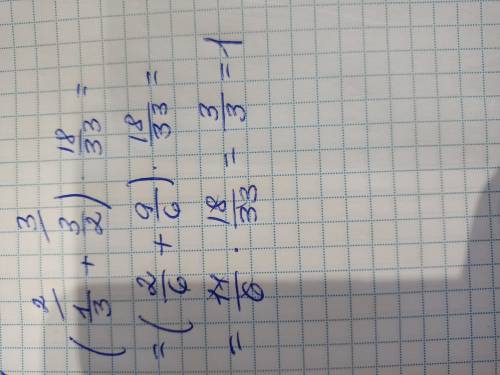 (1/3 \ 2 + 3/2 \ 3) · 18/33 =
= (2/6 + 9/6) · 18/33 =
= 11/6 · 18/33 = 3/3 = 1